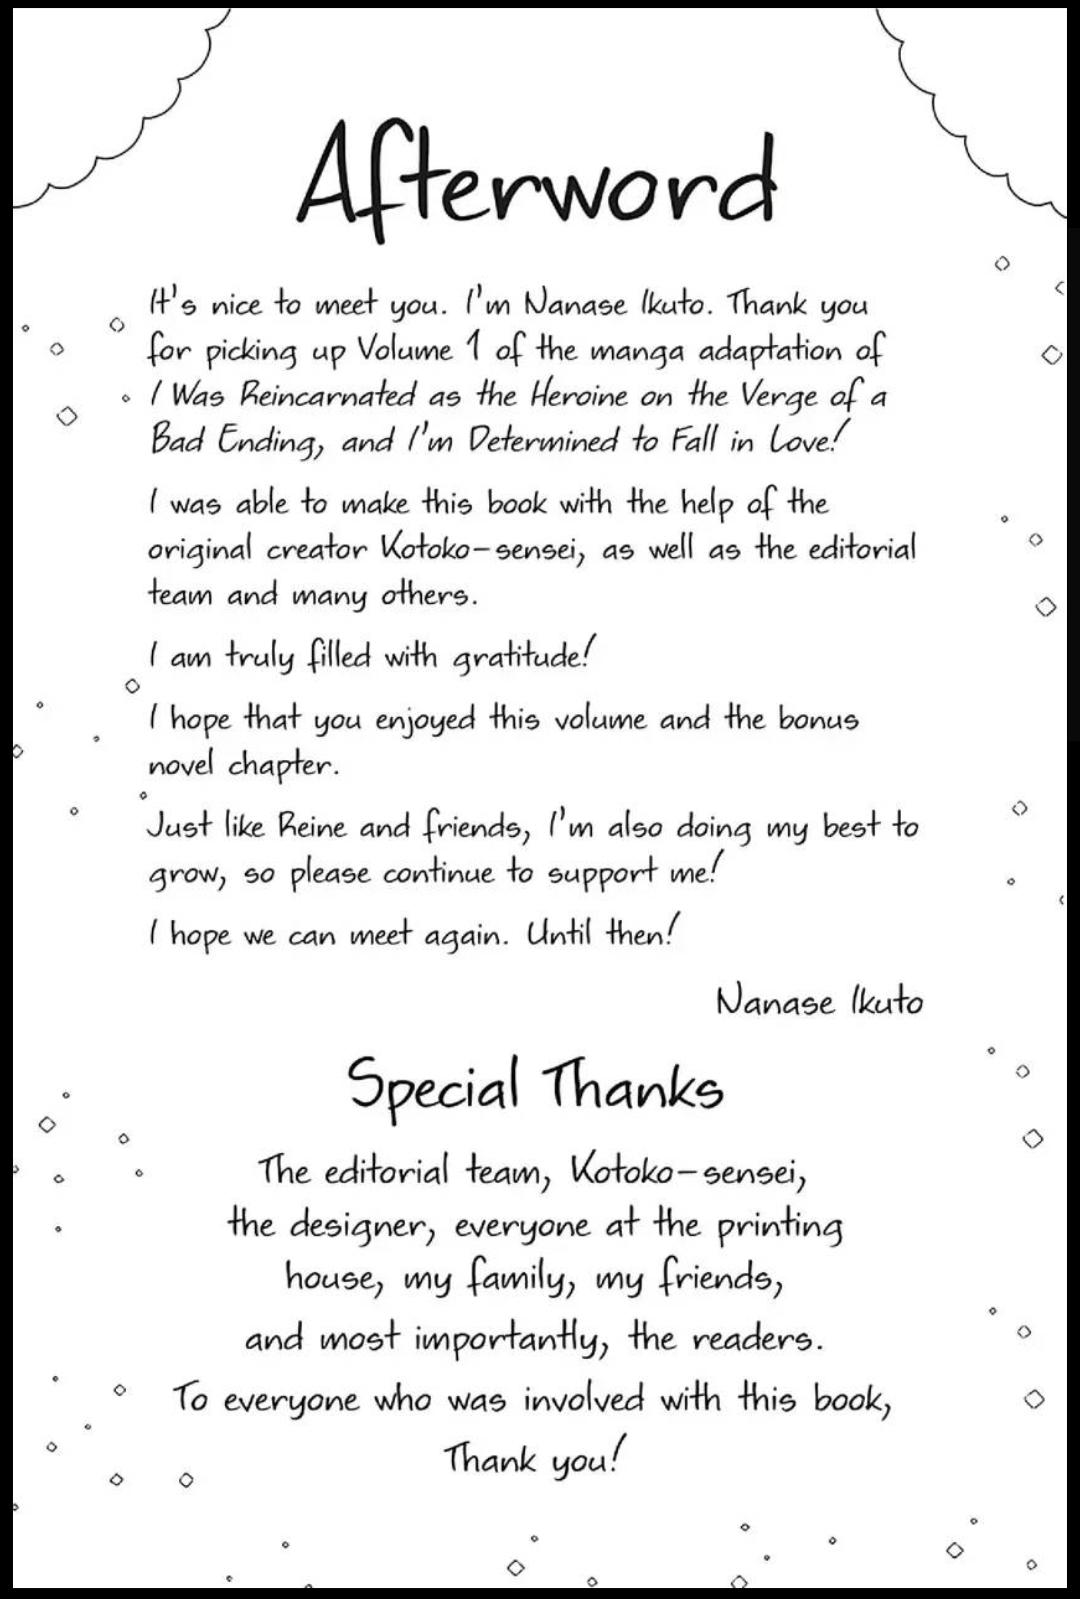 Afterword
It's nice to meet you. I'm Nanase Ikuto. Thank you
for picking up Volume 1 of the manga adaptation of
I Was Reincarnated as the Heroine on the Verge of a
Bad Ending, and I'm Determined to Fall in Love!
I was able to make this book with the help of the
original creator Kotoko-sensei, as well as the editorial
team and many others.
I am truly filled with gratitude!
I hope that you enjoyed this volume and the bonus
novel chapter.
Just like Reine and friends, I'm also doing my best to
grow, so please continue to support me!
I hope we can meet again. Until then!
Nanase Ikuto
Special Thanks
The editorial team, Kotoko-sensei,
the designer, everyone at the printing
house, my family, my friends,
and most importantly, the readers.
To everyone who was involved with this book,
Thank you!